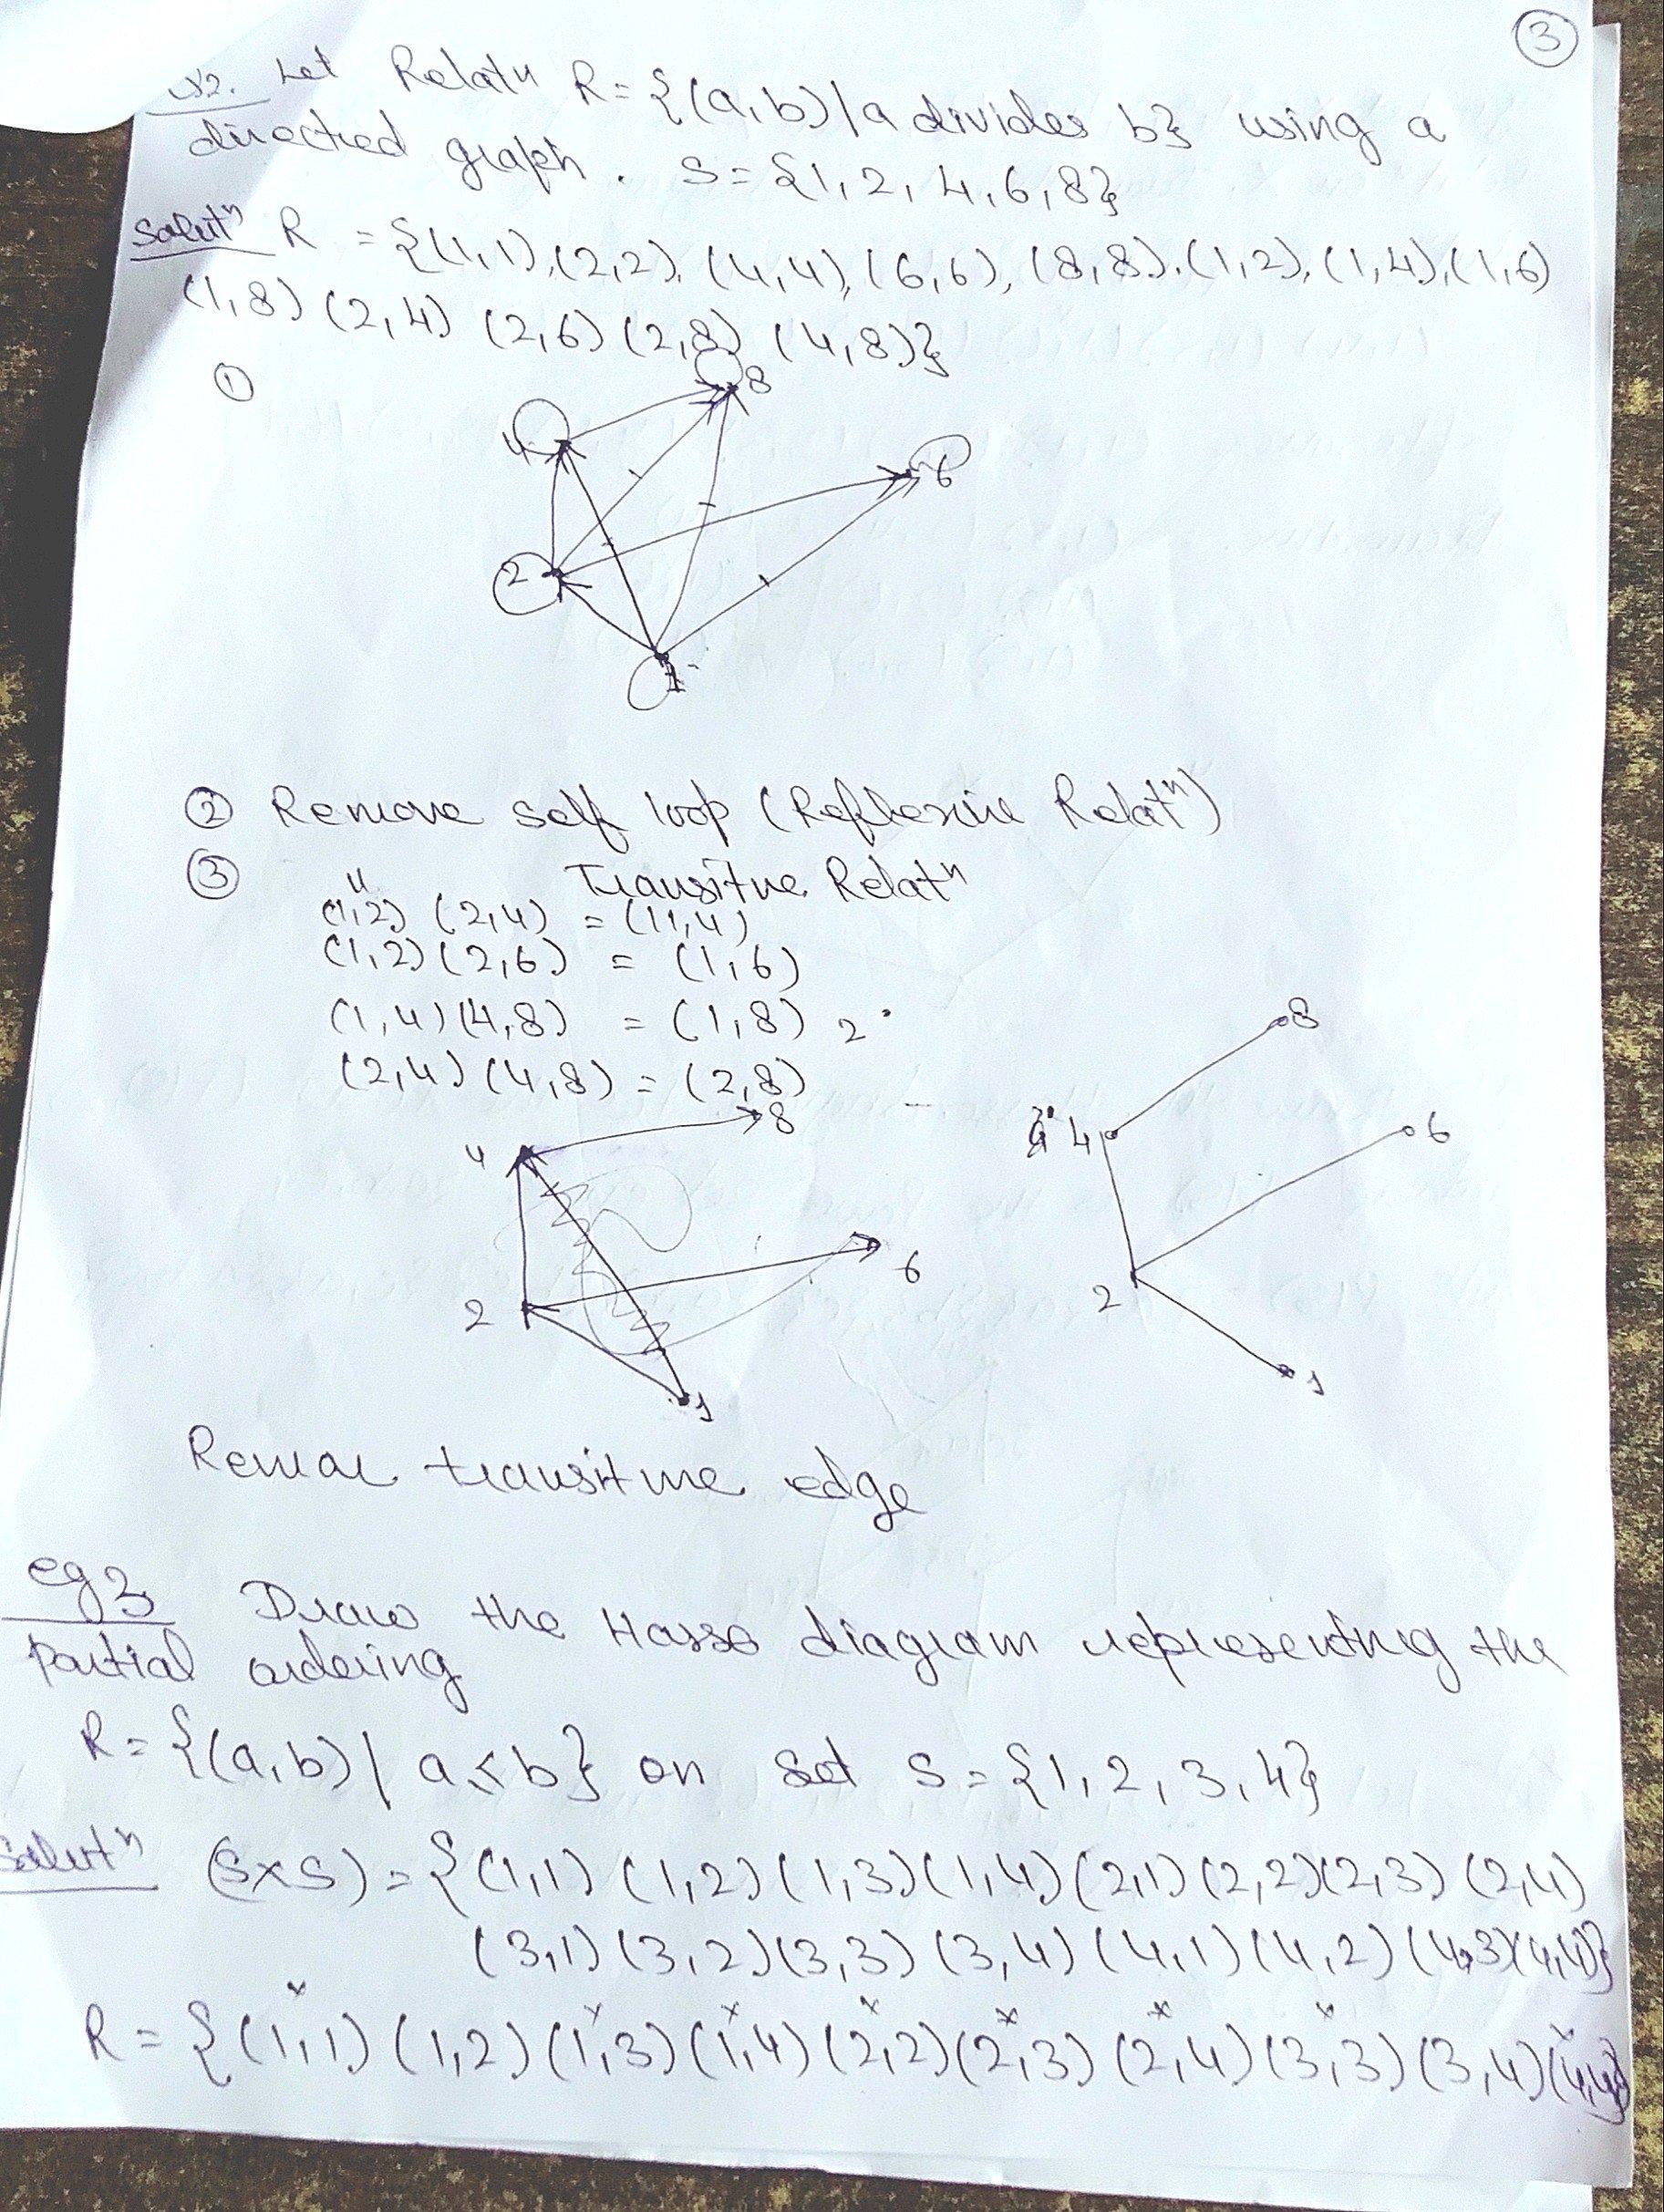 3
2. Let Relatn R = {(a,b)/a divides b} using a
directed graph. S = {1, 2, 4, 6, 8}
Solutn R = {(1,1), (2,2), (4,4), (6,6), (8,8), (1,2), (1,4), (1,6)
(1,8) (2,4) (2,6) (2,8) (4,8)}
①
8
4
6
2
1
② Remove self loop (Reflexive Relatn)
③ Transitive Relatn
(1,2) (2,4) = (11,4)
(1,2) (2,6) = (1,6)
(1,4) (4,8) = (1,8) 2
(2,4) (4,8) = (2,8)
8
4
6
2
1
8
4
6
2
1
Remove transitive edge
eg 3 Draw the Hasse diagram representing the
partial ordering
R = {(a,b) | a ≤ b} on set S = {1, 2, 3, 4}
Solutn (S×S) = {(1,1) (1,2) (1,3) (1,4) (2,1) (2,2) (2,3) (2,4)
(3,1) (3,2) (3,3) (3,4) (4,1) (4,2) (4,3) (4,4)}
R = {(1,1) (1,2) (1,3) (1,4) (2,2) (2,3) (2,4) (3,3) (3,4) (4,4)}